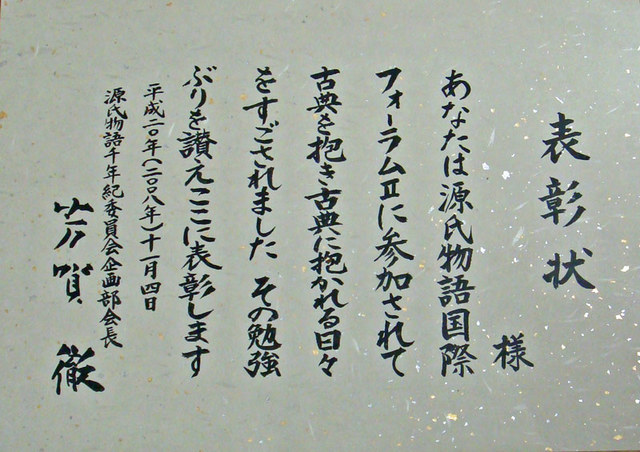 表彰状
様
あなたは源氏物語国際
フォーラムⅡに参加されて
古典を抱き古典に抱かれる日々
をすごされました その勉強
ぶりを讃えここに表彰します
平成二〇年(二〇〇八年)十一月四日
源氏物語千年紀委員会企画部会長
芳賀 徹